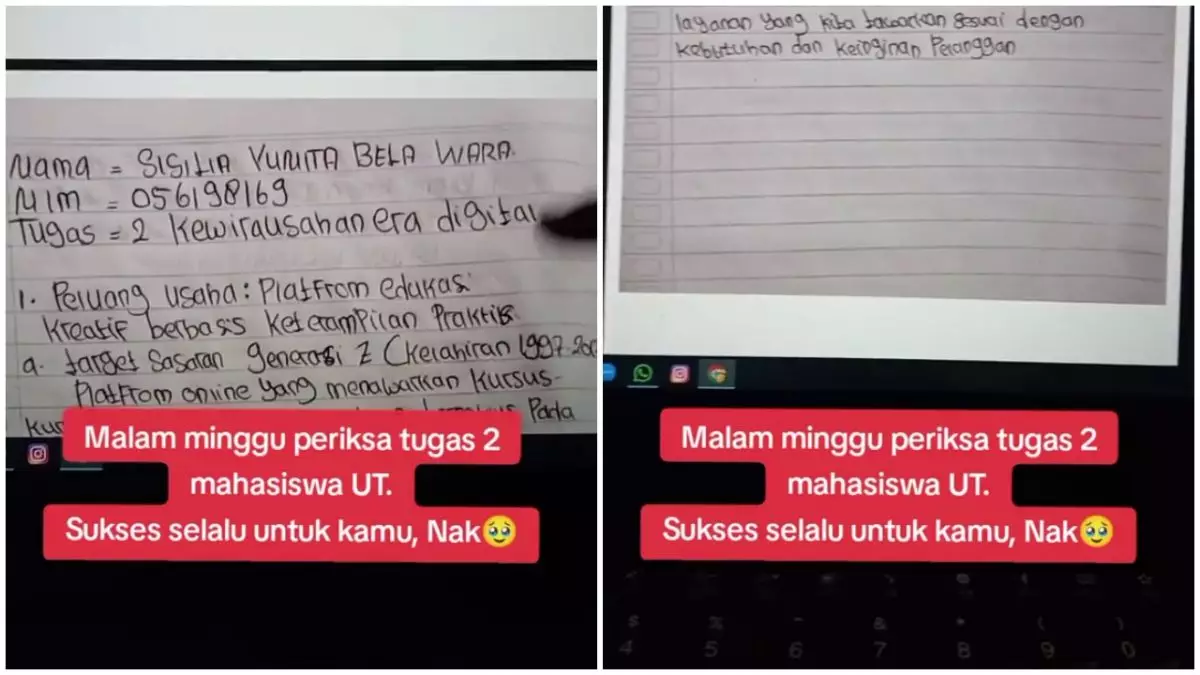 Nama = SISILIA YUNITA BELA WARA.
NIM = 056198169
Tugas = 2 Kewirausahan era digital
1. Peluang usaha : Platfrom edukasi
Kreatif berbasis keterampilan Praktis
a. target Sasaran generasi Z (kelahiran 1997-200
Platfrom online yang menawarkan kursus-
kur
Pada
Malam minggu periksa tugas 2
mahasiswa UT.
Sukses selalu untuk kamu, Nak🥹
layanan yang kita tawarkan sesuai dengan
kebutuhan dan keinginan Pelanggan
Malam minggu periksa tugas 2
mahasiswa UT.
Sukses selalu untuk kamu, Nak🥹
$ % ^ & * ( )
4 5 6 7 8 9 0